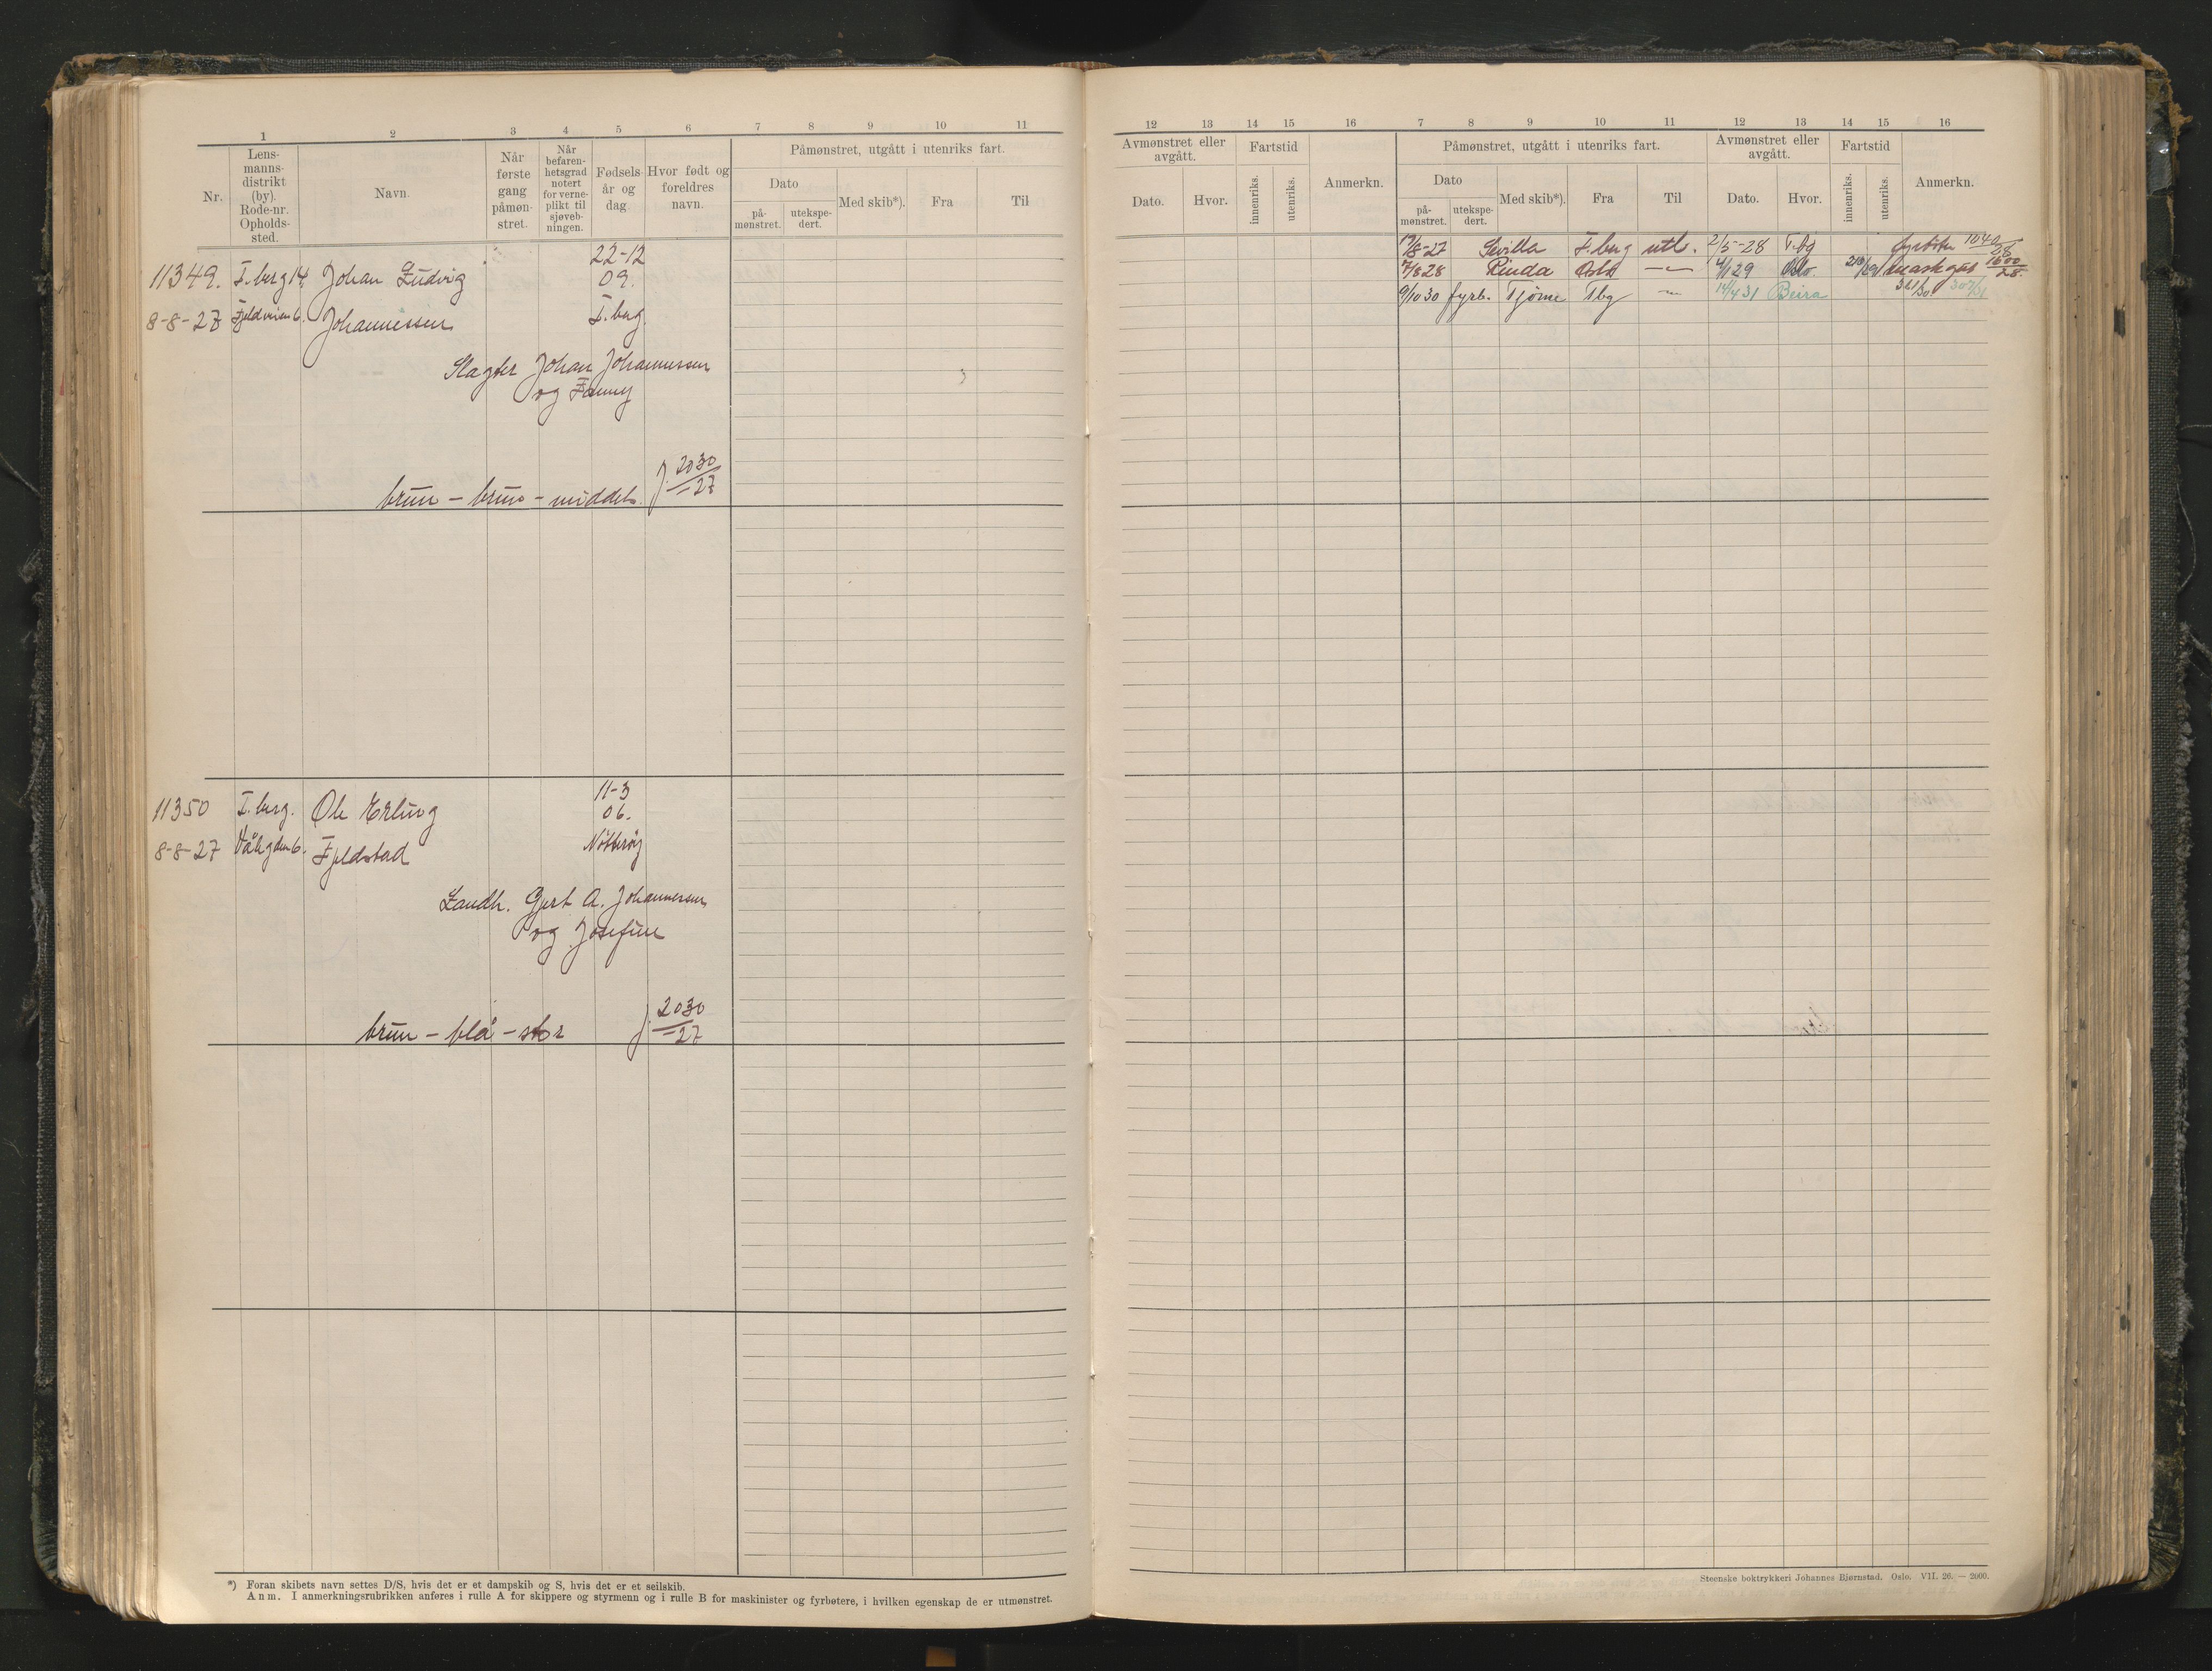 1 2 3 4 5 6 7 8 9 10 11
Nr.
Lens-
manns-
distrikt
(by).
Rode-nr.
Opholds-
sted.
Navn.
Når
første
gang
påmøn-
stret.
Når
befaren-
hetsgrad
notert
for verne-
plikt til
sjøveb-
ningen.
Fødsels-
år og
dag
Hvor født og
foreldres
navn.
Påmønstret, utgått i utenriks fart.
Dato
på-
mønstret.
utekspe-
dert.
Med skib*).
Fra
Til
11349. T.berg 14. Johan Ludvig
8-8-27 Fjeldveien 6. Johannessen
22-12
09.
T.berg.
Slagter Johan Johannessen
og Fanny
brun - brun - middels. J. 2030
-27
11350 T.berg. Ole Erling
8-8-27 Fjeldstad
11-3
06.
Nøtterøy
Landh. Gert A. Johannessen
og Josefine
brun - blå - stor J. 2030
-27
*) Foran skibets navn settes D/S, hvis det er et dampskib og S, hvis det er et seilskib.
Anm. I anmerkningsrubrikken anføres i rulle A for skippere og styrmenn og i rulle B for maskinister og fyrbøtere, i hvilken egenskap de er utmønstret.
12 13 14 15 16 7 8 9 10 11 12 13 14 15 16
Avmønstret eller
avgått.
Dato.
Hvor.
Fartstid
innenriks.
utenriks.
Anmerkn.
Påmønstret, utgått i utenriks fart.
Dato
på-
mønstret.
utekspe-
dert.
Med skib*).
Fra
Til
Avmønstret eller
avgått.
Dato.
Hvor.
Fartstid
innenriks.
utenriks.
Anmerkn.
/8-27 Sevilla T.berg utl. 2/5-28 T.bg fyrbøter 1040/28
7/8 28 Rinda Oslo -"- 4/1 29 Oslo 1600/28.
9/10 30 fyrb. Tjøme Tbg -"- 14/4 31 Beira 361/30 307/31
Steenske boktrykkeri Johannes Bjørnstad. Oslo. VII. 26. — 2000.